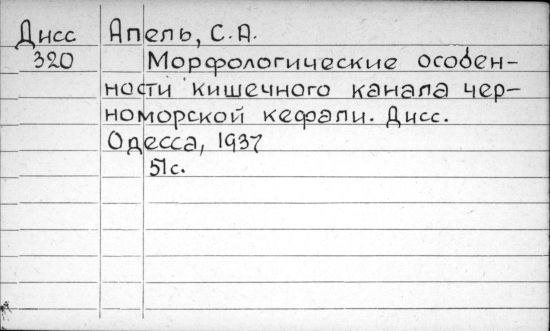 Дисс Апель, С.А.
320 Морфологические особен-
ности кишечного канала чер-
номорской кефали. Дисс.
Одесса, 1937
51с.